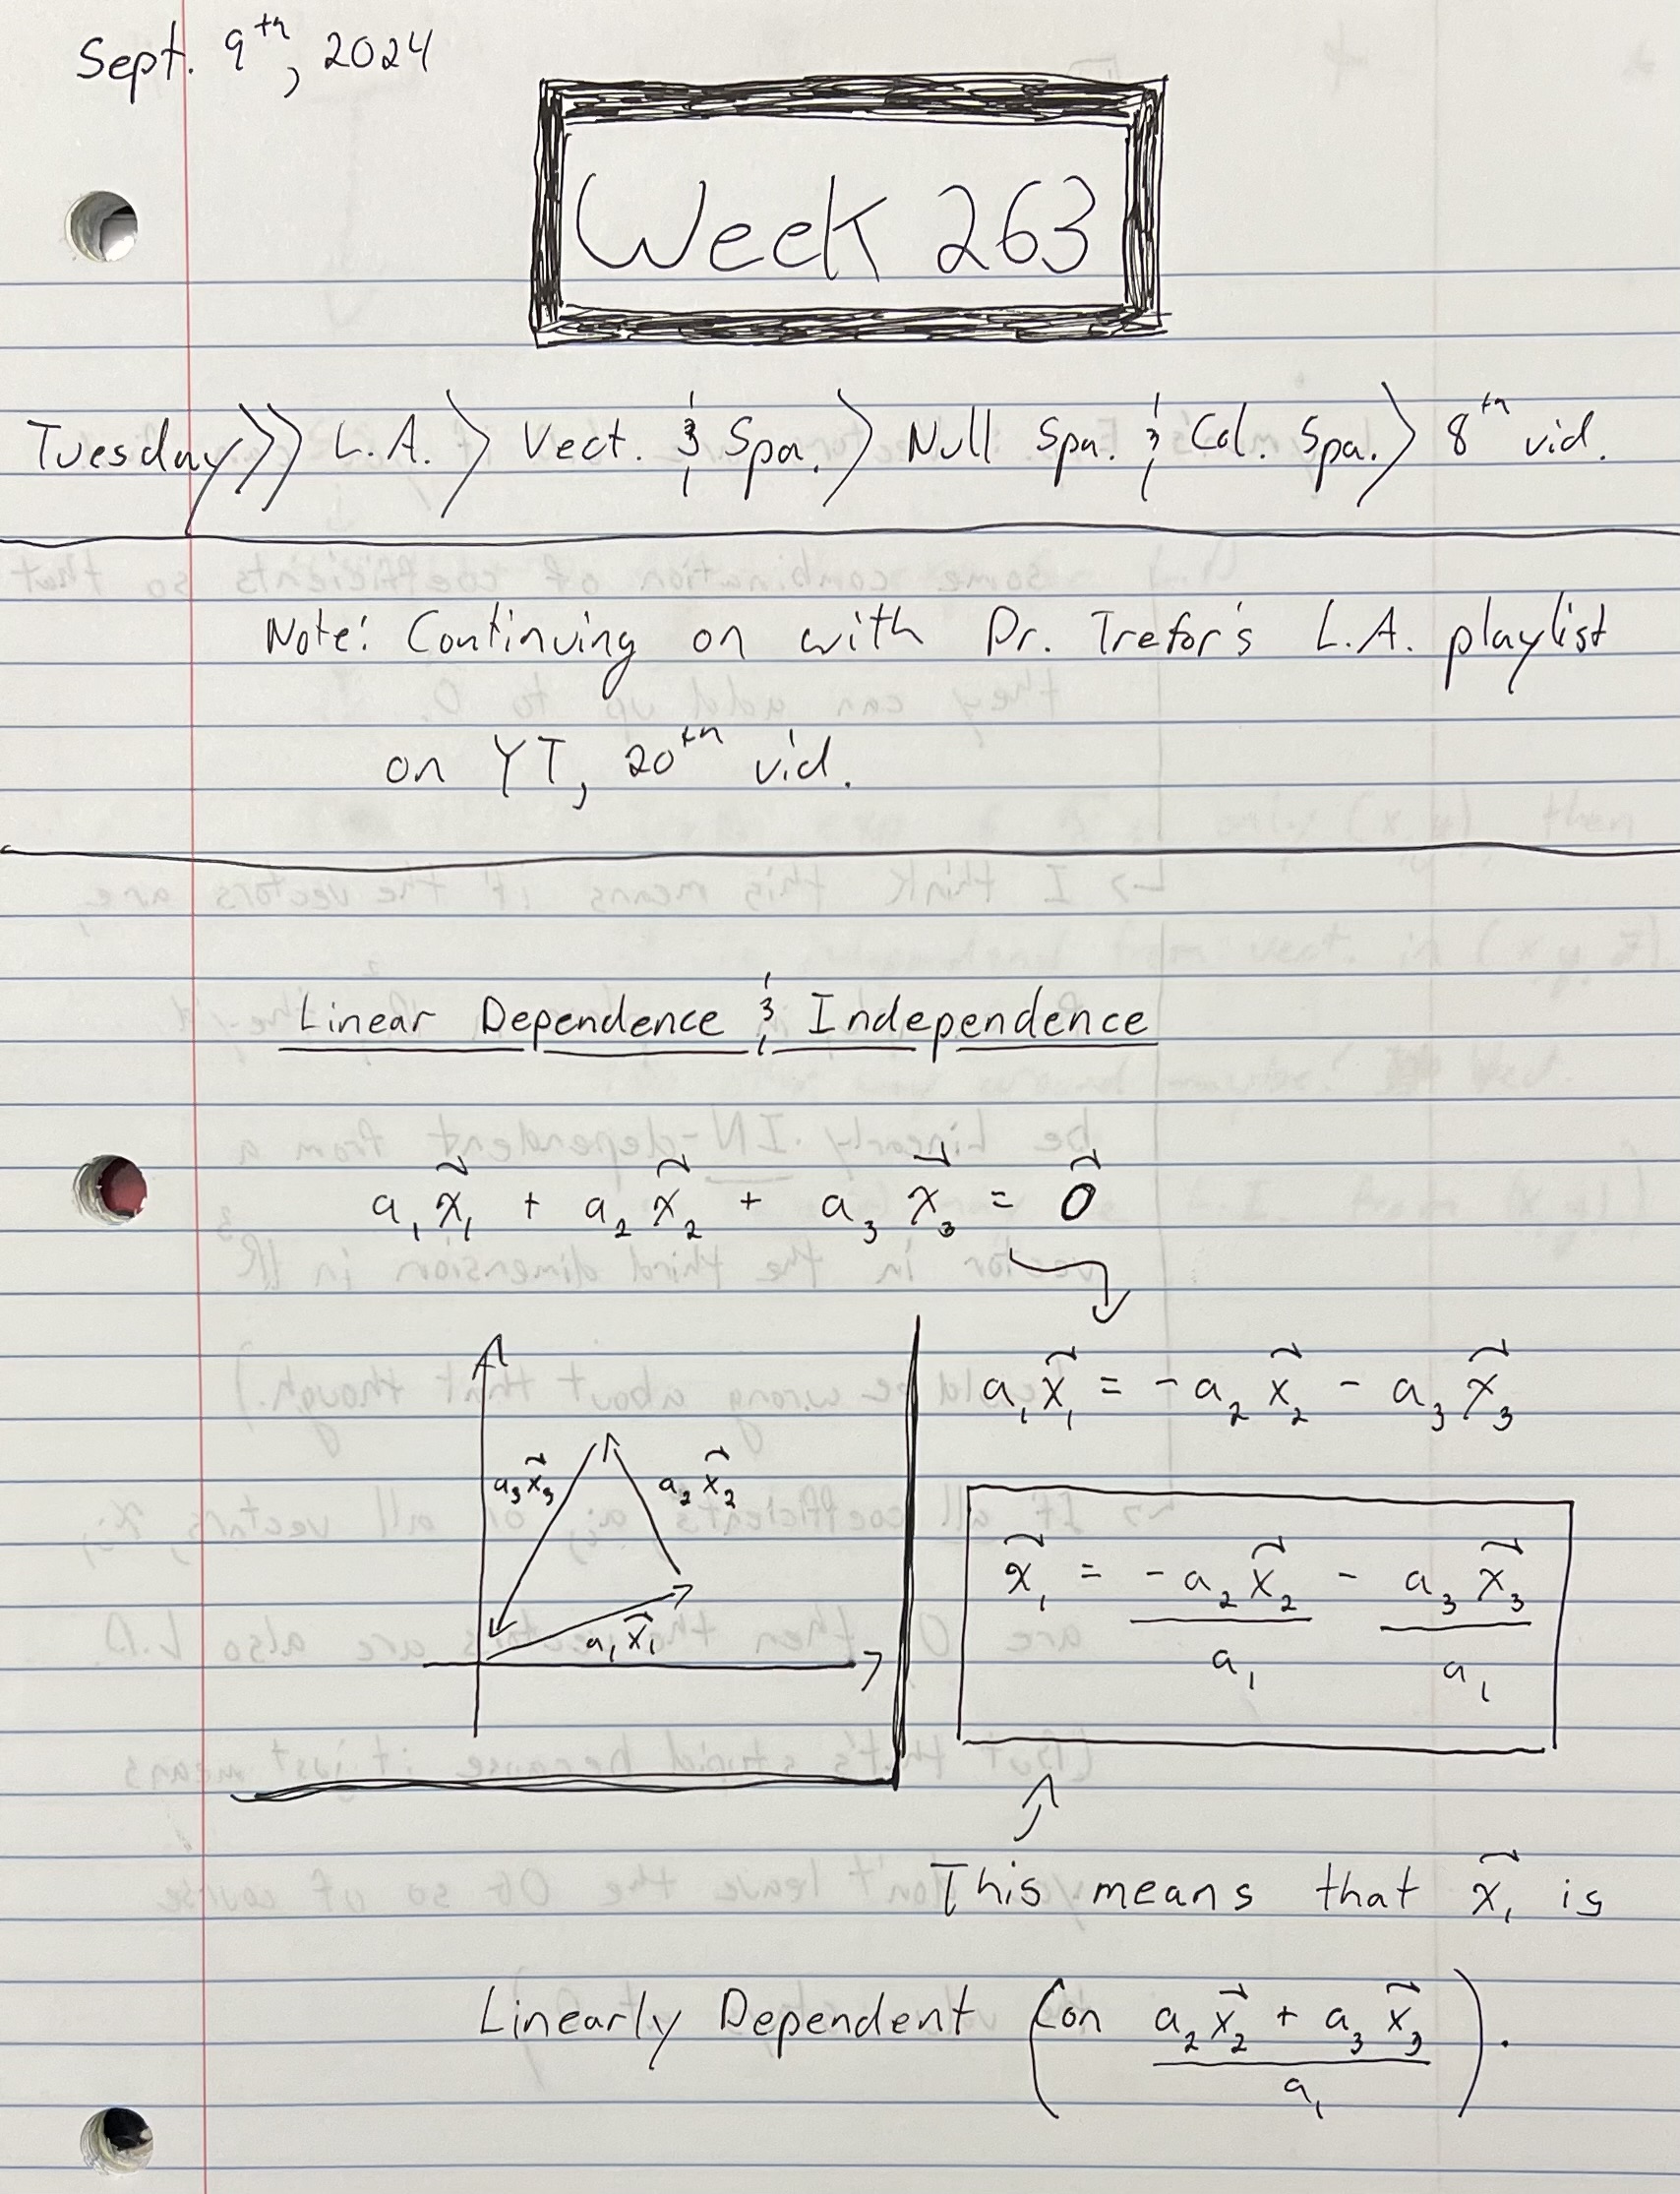 Sept. 9th, 2024
Week 263
Tuesday >> L.A. > Vect. & Spa. > Null Spa. & Col. Spa. > 8th vid.
Note: Continuing on with Dr. Trefor's L.A. playlist
on YT, 20th vid.
Linear Dependence & Independence
a₁x⃗₁ + a₂x⃗₂ + a₃x⃗₃ = 0⃗
a₁x⃗₁ = -a₂x⃗₂ - a₃x⃗₃
a₃x⃗₃ a₂x⃗₂
a₁x⃗₁
x⃗₁ = -a₂x⃗₂/a₁ - a₃x⃗₃/a₁
This means that x⃗₁ is
Linearly Dependent (on (a₂x⃗₂ + a₃x⃗₃)/a₁).